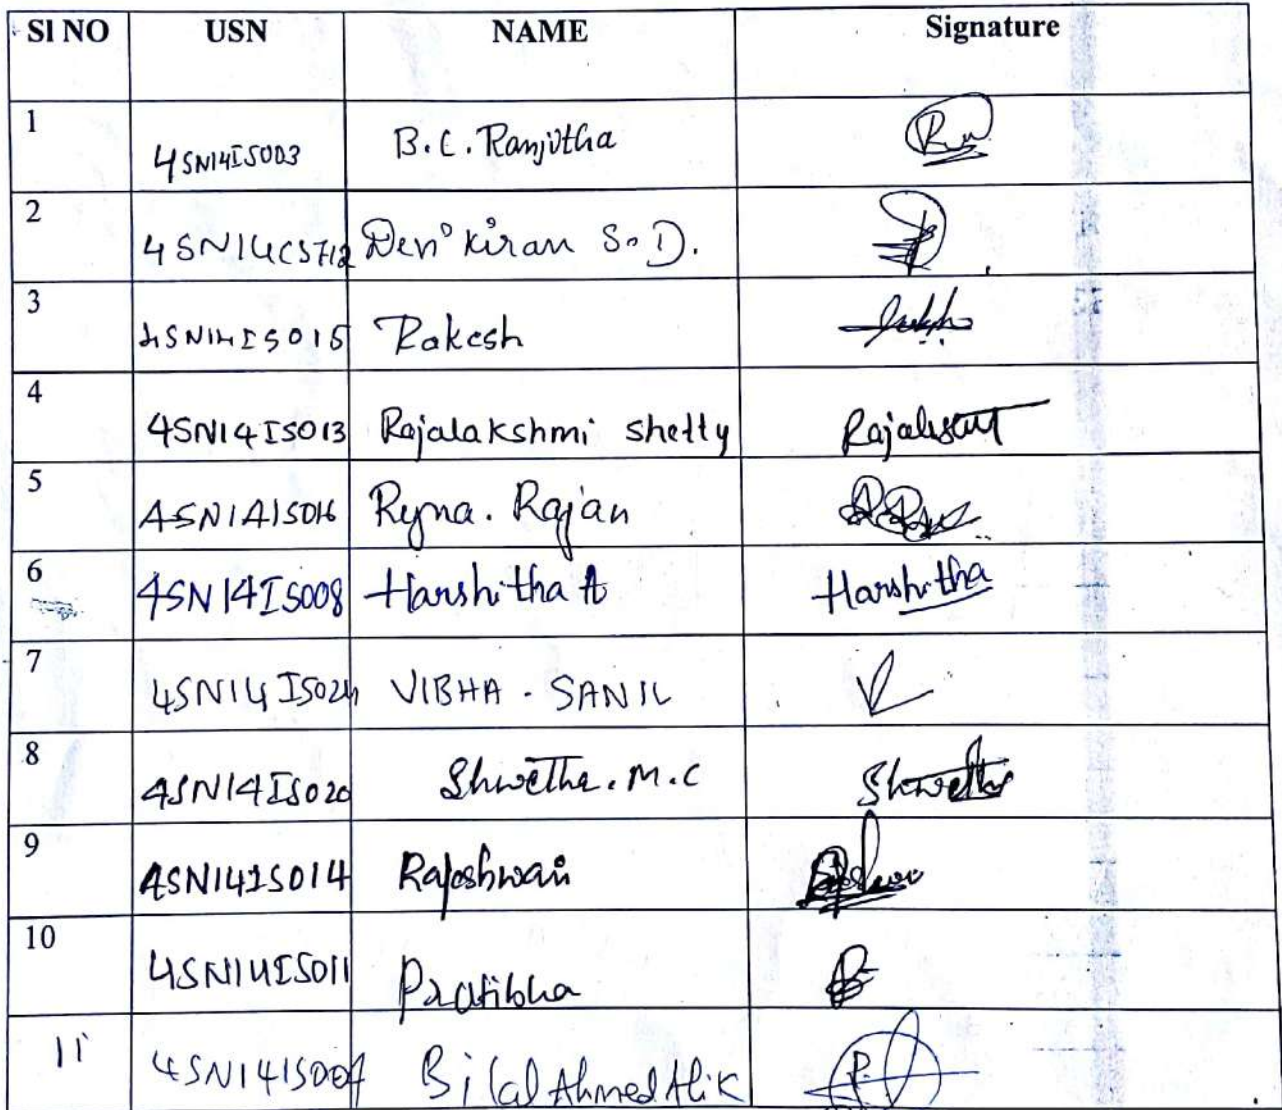 Sl NO USN NAME Signature
1 4SN14IS003 B.C. Ranjitha
2 4SN14CS712 Devi Kiran S. D.
3 4SN14IS015 Rakesh
4 4SN14IS013 Rajalakshmi shetty
5 4SN14IS016 Ryna. Rajan
6 4SN14IS008 Harshitha A Harshitha
7 4SN14IS024 VIBHA - SANIL
8 4SN14IS020 Shwetha. M. C Shwetha
9 4SN14IS014 Rajeshwari
10 4SN14IS011 Pratibha
11 Bilal Ahmed Ali K